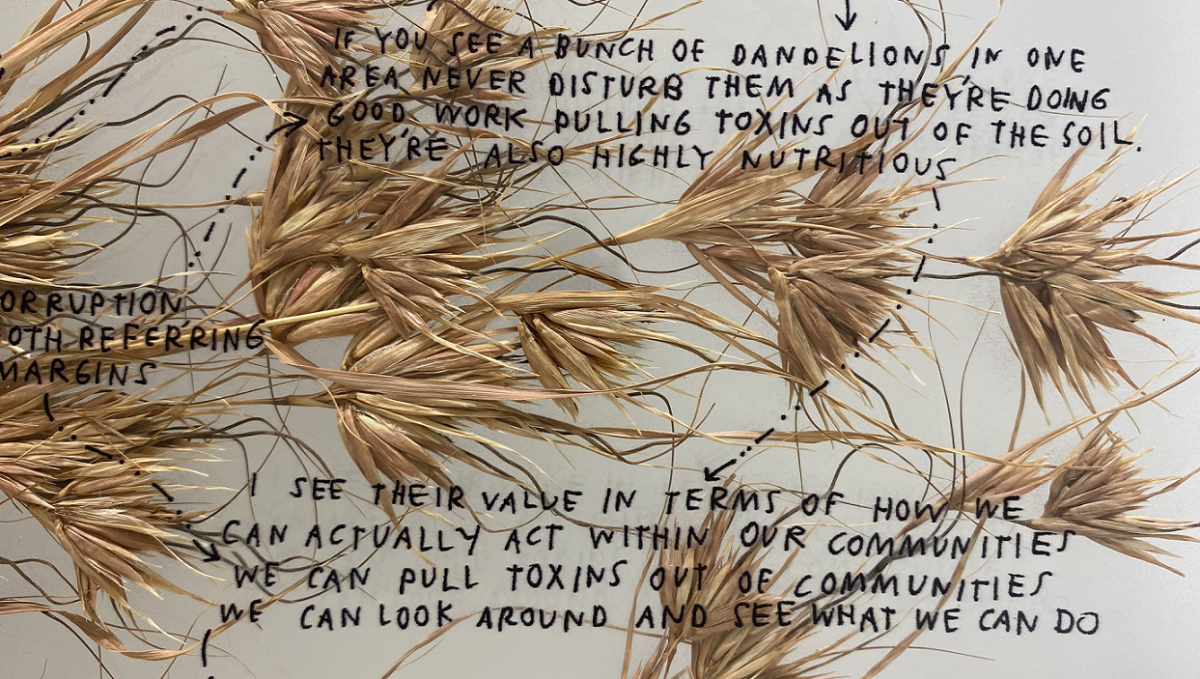 IF YOU SEE A BUNCH OF DANDELIONS IN ONE
AREA NEVER DISTURB THEM AS THEY'RE DOING
GOOD WORK PULLING TOXINS OUT OF THE SOIL.
THEY'RE ALSO HIGHLY NUTRITIOUS
ORRUPTION
OTH REFERRING
MARGINS
I SEE THEIR VALUE IN TERMS OF HOW WE
CAN ACTUALLY ACT WITHIN OUR COMMUNITIES
WE CAN PULL TOXINS OUT OF COMMUNITIES
WE CAN LOOK AROUND AND SEE WHAT WE CAN DO